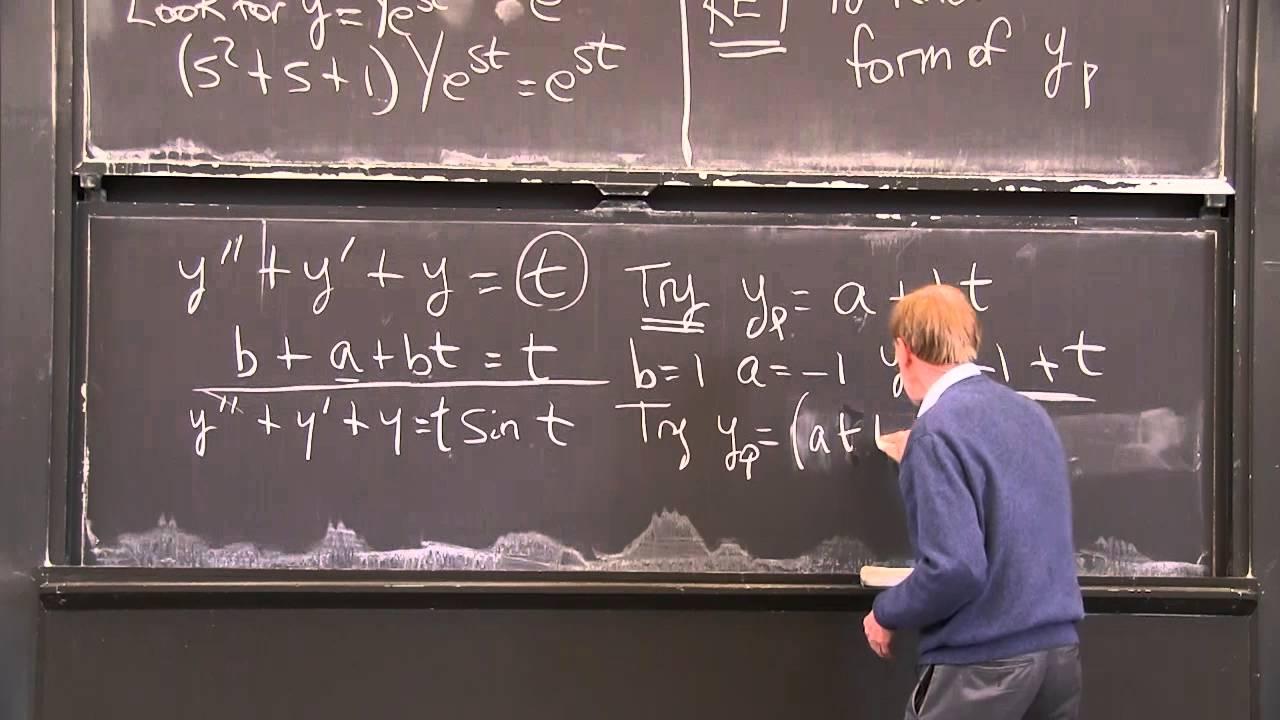 Look for y = Ye^{st}
(s² + s + 1) Ye^{st} = e^{st}
KEY
form of y_p
y'' + y' + y = t
Try y_p = a + t
b + a + bt = t
b = 1 a = -1 y -1 + t
y'' + y' + y = t sin t
Try y_p = (a +